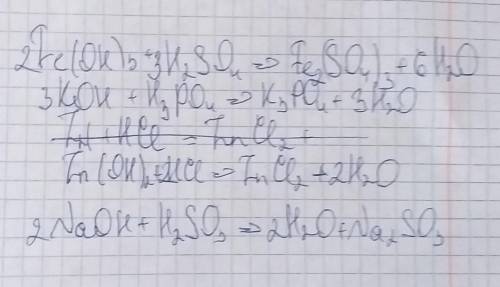 2Fe(OH)3 + 3H2SO4 => Fe2(SO4)3 + 6H2O
3KOH + H3PO4 => K3PO4 + 3H2O
Zn + HCl = ZnCl2 +
Zn(OH)2 + 2HCl => ZnCl2 + 2H2O
2NaOH + H2SO3 => 2H2O + Na2SO3